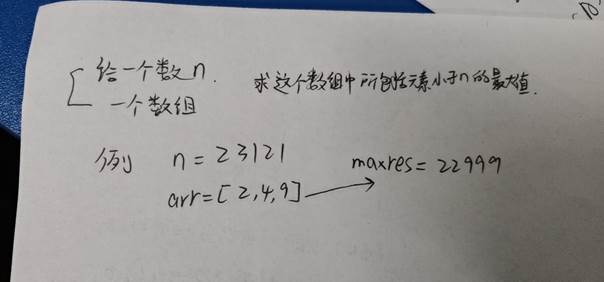 给一个数n.
一个数组
求这个数组中所包括元素小于n的最大值.
例 n=23121
arr=[2,4,9]
maxres=22999